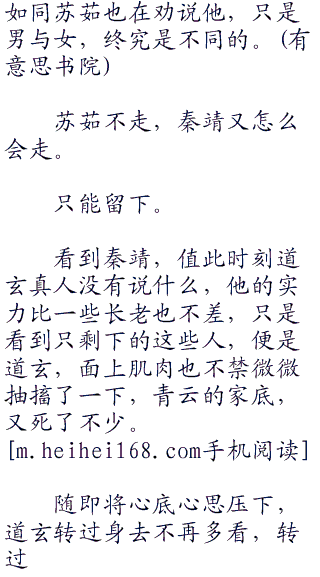 如同苏茹也在劝说他，只是
男与女，终究是不同的。(有
意思书院)
苏茹不走，秦靖又怎么
会走。
只能留下。
看到秦靖，值此时刻道
玄真人没有说什么，他的实
力比一些长老也不差，只是
看到只剩下的这些人，便是
道玄，面上肌肉也不禁微微
抽搐了一下，青云的家底，
又死了不少。
[m.heihei168.com手机阅读]
随即将心底心思压下，
道玄转过身去不再多看，转
过